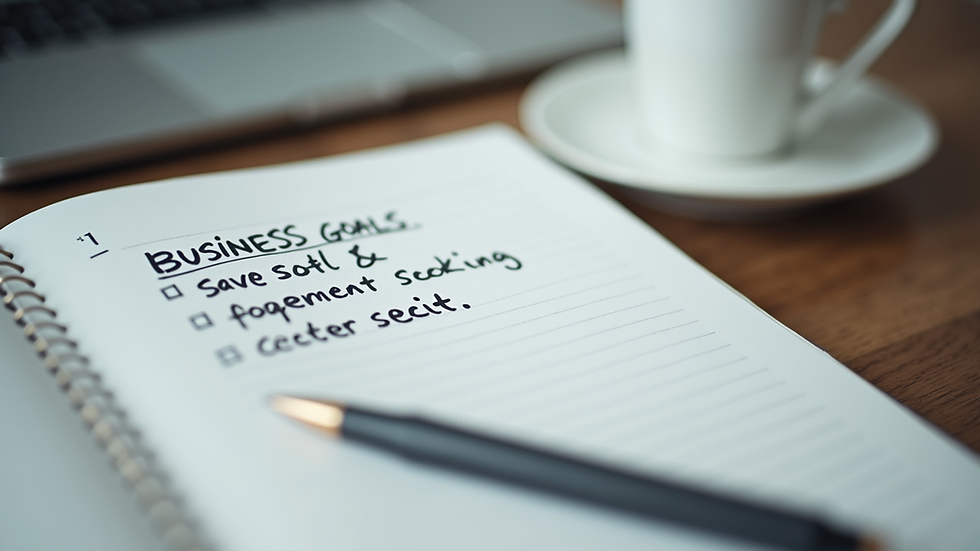 1
BUSINESS GOALS.
save sotl &
fogement seoking
cecter secit.